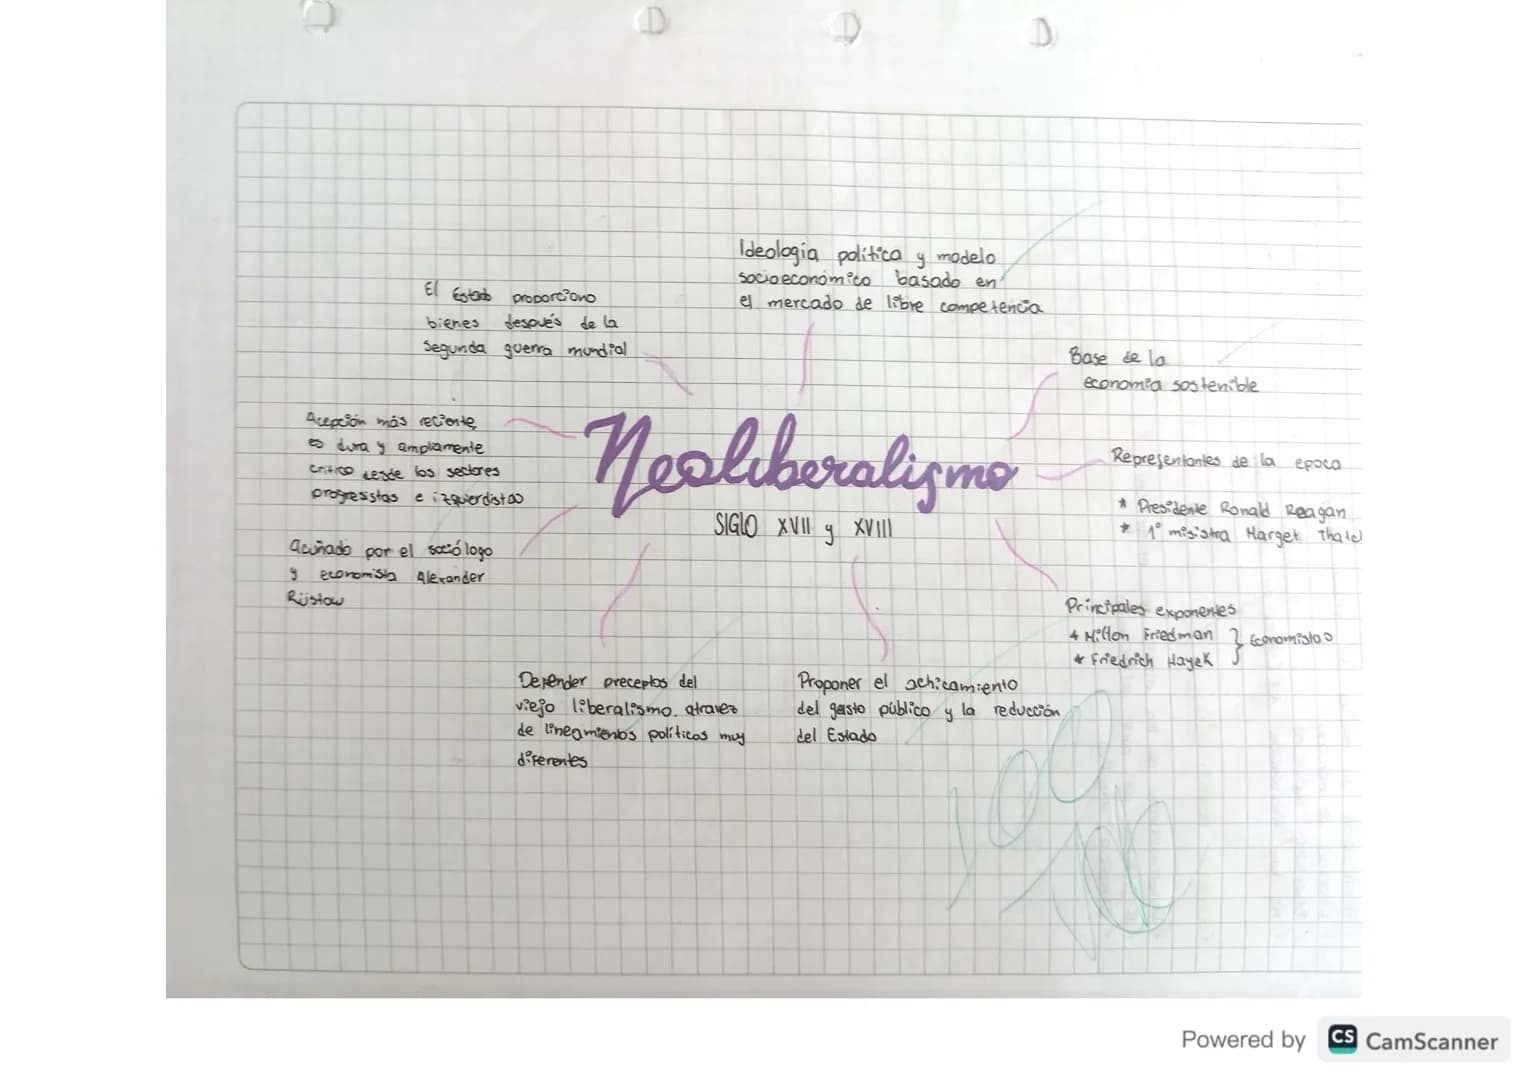 Ideologia política y modelo
socioeconómico basado en
el mercado de libre competencia
El Estado proporciono
bienes después de la
Segunda guerra mundial
Base de la
economia sostenible
Acepción más reciente,
es dura y ampliamente
critico desde los sectores
progresistas e izquierdistas
Neoliberalismo
SIGLO XVII y XVIII
Representantes de la epoca
* Presidente Ronald Reagan
* 1° misistra Marget Thatc
Acuñado por el sociólogo
y economista Alexander
Rüstow
Principales exponentes
* Milton Friedman } Economistas
* Friedrich Hayek
Defender preceptos del
viejo liberalismo, atravez
de lineamientos políticos muy
diferentes
Proponer el achicamiento
del gasto público y la reducción
del Estado
100
Powered by CS CamScanner